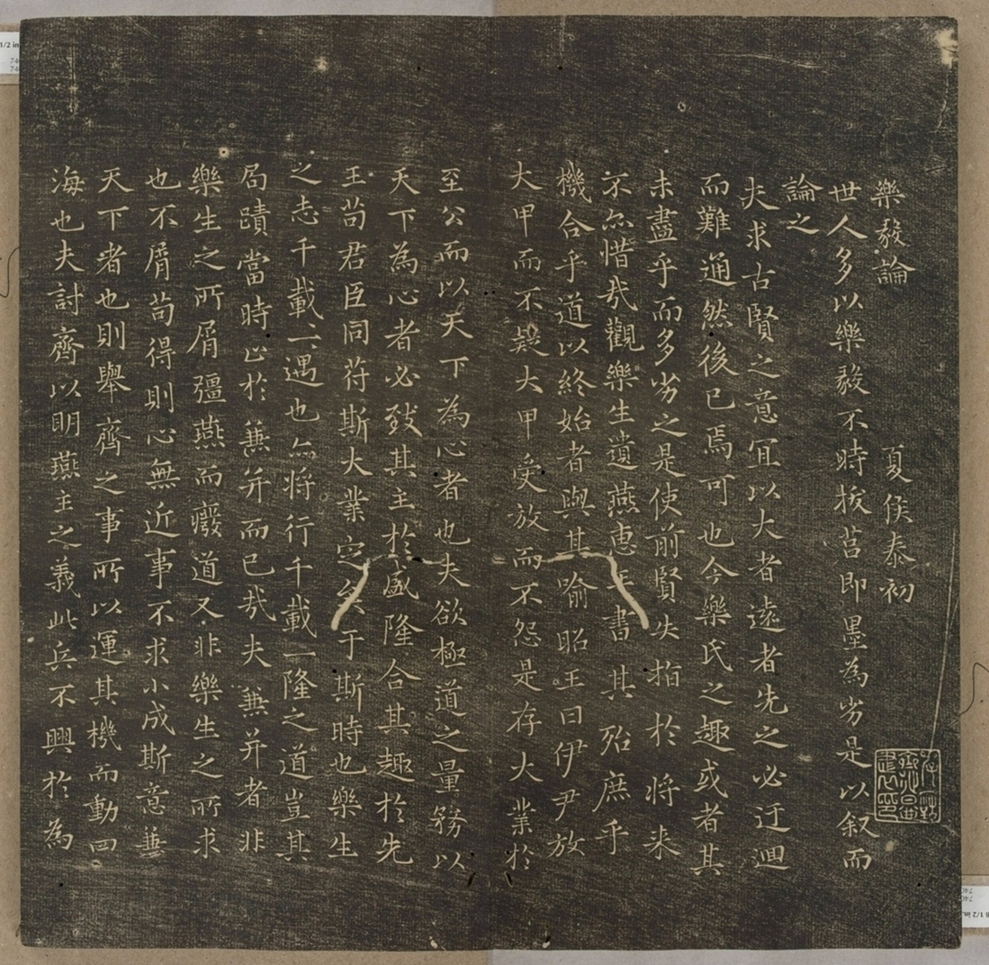 樂毅論
夏侯泰初
世人多以樂毅不時拔莒即墨為劣是以叙而
論之
夫求古賢之意宜以大者遠者先之必迂迴
而難通然後已焉可也今樂氏之趣或者其
未盡乎而多劣之是使前賢失指於將来
不亦惜哉觀樂生遺燕惠王書其殆庶乎
機合乎道以終始者與其喻昭王曰伊尹放
大甲而不疑大甲受放而不怨是存大業於
至公而以天下為心者也夫欲極道之量務以
天下為心者必致其主於盛隆合其趣於先
王苟君臣同符斯大業定矣于斯時也樂生
之志千載一遇也亦將行千載一隆之道豈其
局蹟當時止於兼并而已哉夫兼并者非
樂生之所屑彊燕而癈道又非樂生之所求
也不屑苟得則心無近事不求小成斯意兼
天下者也則舉齊之事所以運其機而動四
海也夫討齊以明燕主之義此兵不興於為